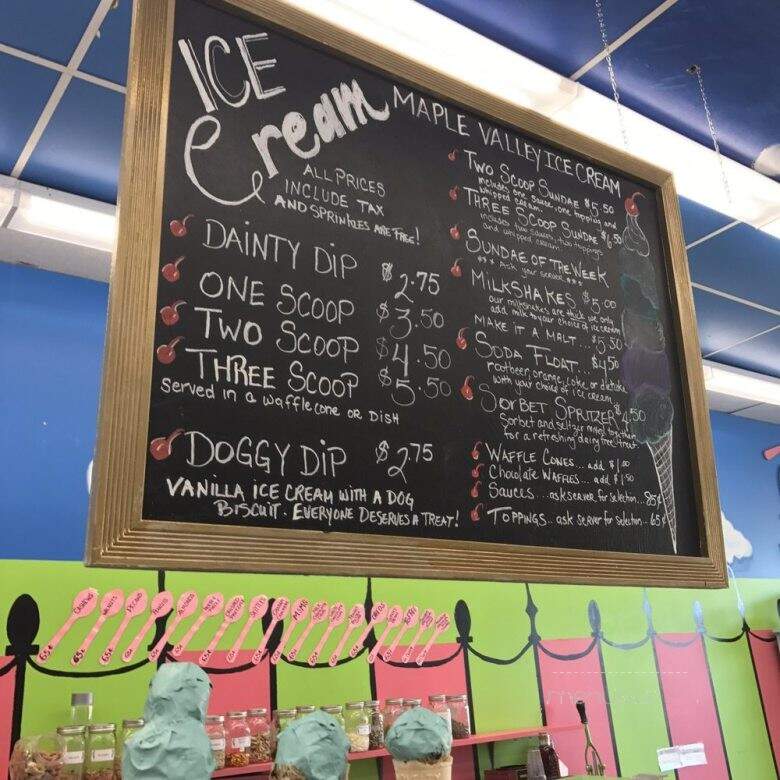 ICE
Cream
ALL PRICES
INCLUDE TAX
AND SPRINKLES ARE FREE!
DAINTY DIP $2.75
ONE SCOOP $3.50
TWO SCOOP $4.50
THREE SCOOP $5.50
Served in a waffle cone OR DISH
DOGGY DIP $2.75
VANILLA ICE CREAM WITH A DOG
BISCUIT. EVERYONE DESERVES A TREAT!
MAPLE VALLEY ICE CREAM
TWO SCOOP SUNDAE $5.50
includes one sauce, one topping and
whipped cream
THREE SCOOP SUNDAE $6.50
includes two sauces, two toppings
and whipped cream
SUNDAE OF THE WEEK
*** Ask your server ***
MILKSHAKES $5.00
our milkshakes are thick we only
add milk to your choice of ice cream
MAKE IT A MALT... $5.50
SODA FLOAT... $4.50
rootbeer, orange, coke, or diet coke
with your choice of ice cream
SORBET SPRITZER $4.50
Sorbet and seltzer mixed together
for a refreshing dairy free treat.
WAFFLE CONES... add $1.00
Chocolate WAFFLES... add $1.50
SAUCES... ask server for selection... 85¢
TOPPINGS... ask server for selection... 65¢